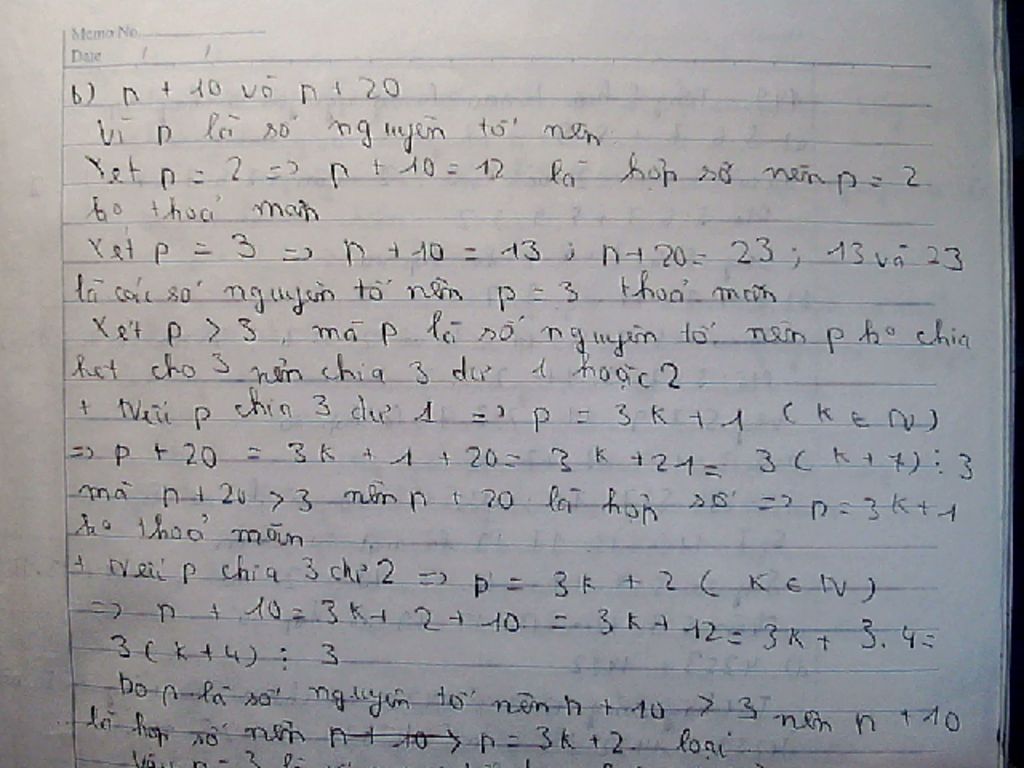 Memo No.
Date / /
b) p + 10 và p + 20
Vì p là số nguyên tố nên
Xét p = 2 => p + 10 = 12 là hợp số nên p = 2
ko thoả mãn
Xét p = 3 => p + 10 = 13 ; p + 20 = 23 ; 13 và 23
là các số nguyên tố nên p = 3 thoả mãn
Xét p > 3, mà p là số nguyên tố nên p ko chia
hết cho 3 nên chia 3 dư 1 hoặc 2
+ Nếu p chia 3 dư 1 => p = 3k + 1 ( k ∈ N )
=> p + 20 = 3k + 1 + 20 = 3k + 21 = 3 ( k + 7 ) ⋮ 3
mà p + 20 > 3 nên p + 20 là hợp số => p = 3k + 1
ko thoả mãn
+ Nếu p chia 3 dư 2 => p = 3k + 2 ( k ∈ N )
=> p + 10 = 3k + 2 + 10 = 3k + 12 = 3k + 3.4 =
3 ( k + 4 ) ⋮ 3
Do p là số nguyên tố nên p + 10 > 3 nên p + 10
là hợp số nên p + 10 > p = 3k + 2 loại
Vậy p = 3 là số nguyên tố